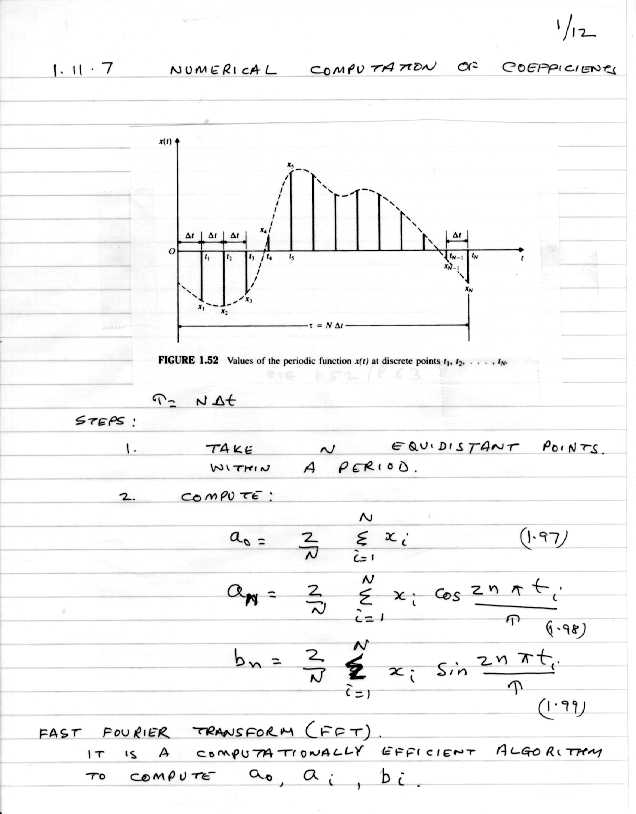 1/12
1.11.7 NUMERICAL COMPUTATION OF COEFFICIENTS
x(t)
x₅
x₄
Δt Δt Δt Δt
O t₁ t₂ t₃ t₄ t₅ tN−1 tN t
x₁ x₂ x₃ xN−1 xN
τ = N Δt
FIGURE 1.52 Values of the periodic function x(t) at discrete points t₁, t₂, . . . , tN.
τ = NΔt
STEPS :
1. TAKE N EQUIDISTANT POINTS.
WITHIN A PERIOD.
2. COMPUTE :
a₀ = 2/N Σ_{i=1}^{N} xᵢ (1.97)
aₙ = 2/N Σ_{i=1}^{N} xᵢ cos 2nπtᵢ/τ (1.98)
bₙ = 2/N Σ_{i=1}^{N} xᵢ sin 2nπtᵢ/τ (1.99)
FAST FOURIER TRANSFORM (FFT).
IT IS A COMPUTATIONALLY EFFICIENT ALGORITHM
TO COMPUTE a₀, aᵢ, bᵢ.